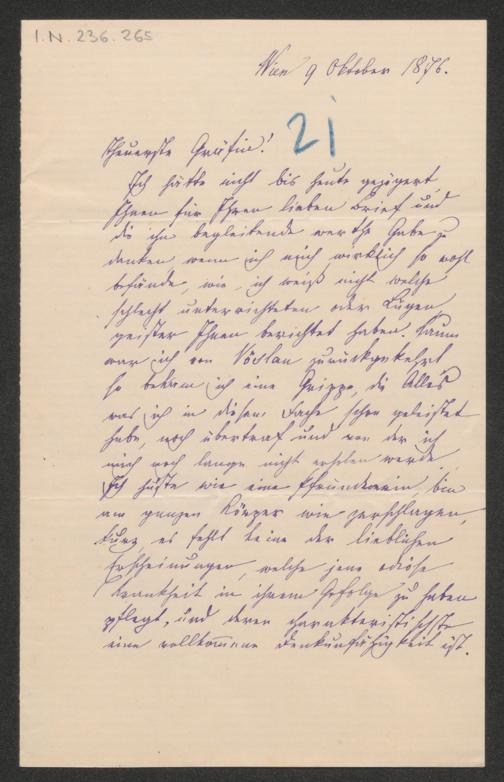 I.N. 236.265
Wien 9 Oktober 1876.
21
Theuerste Gräfin!
Ich hätte nicht bis heute gezögert
Ihnen für Ihren lieben Brief und
die ihn begleitende werthe Gabe zu
danken wenn ich mich wirklich so wohl
befände, wie, ich weiß nicht welche
schlecht unterrichteten oder Lügen
geister Ihnen berichtet haben. Kaum
war ich von Vöslau zurückgekehrt
so bekam ich eine Grippe, die Alles
was ich in diesem Fache schon geleistet
habe, noch übertraf und von der ich
mich noch lange nicht erholen werde.
Ich huste wie eine Pfründnerin, bin
am ganzen Körper wie zerschlagen,
kurz es fehlt keine der lieblichen
Erscheinungen, welche jene odiöse
Krankheit in ihrem Gefolge zu haben
pflegt, und deren charakteristischste
eine vollkommene Denkunfähigkeit ist.